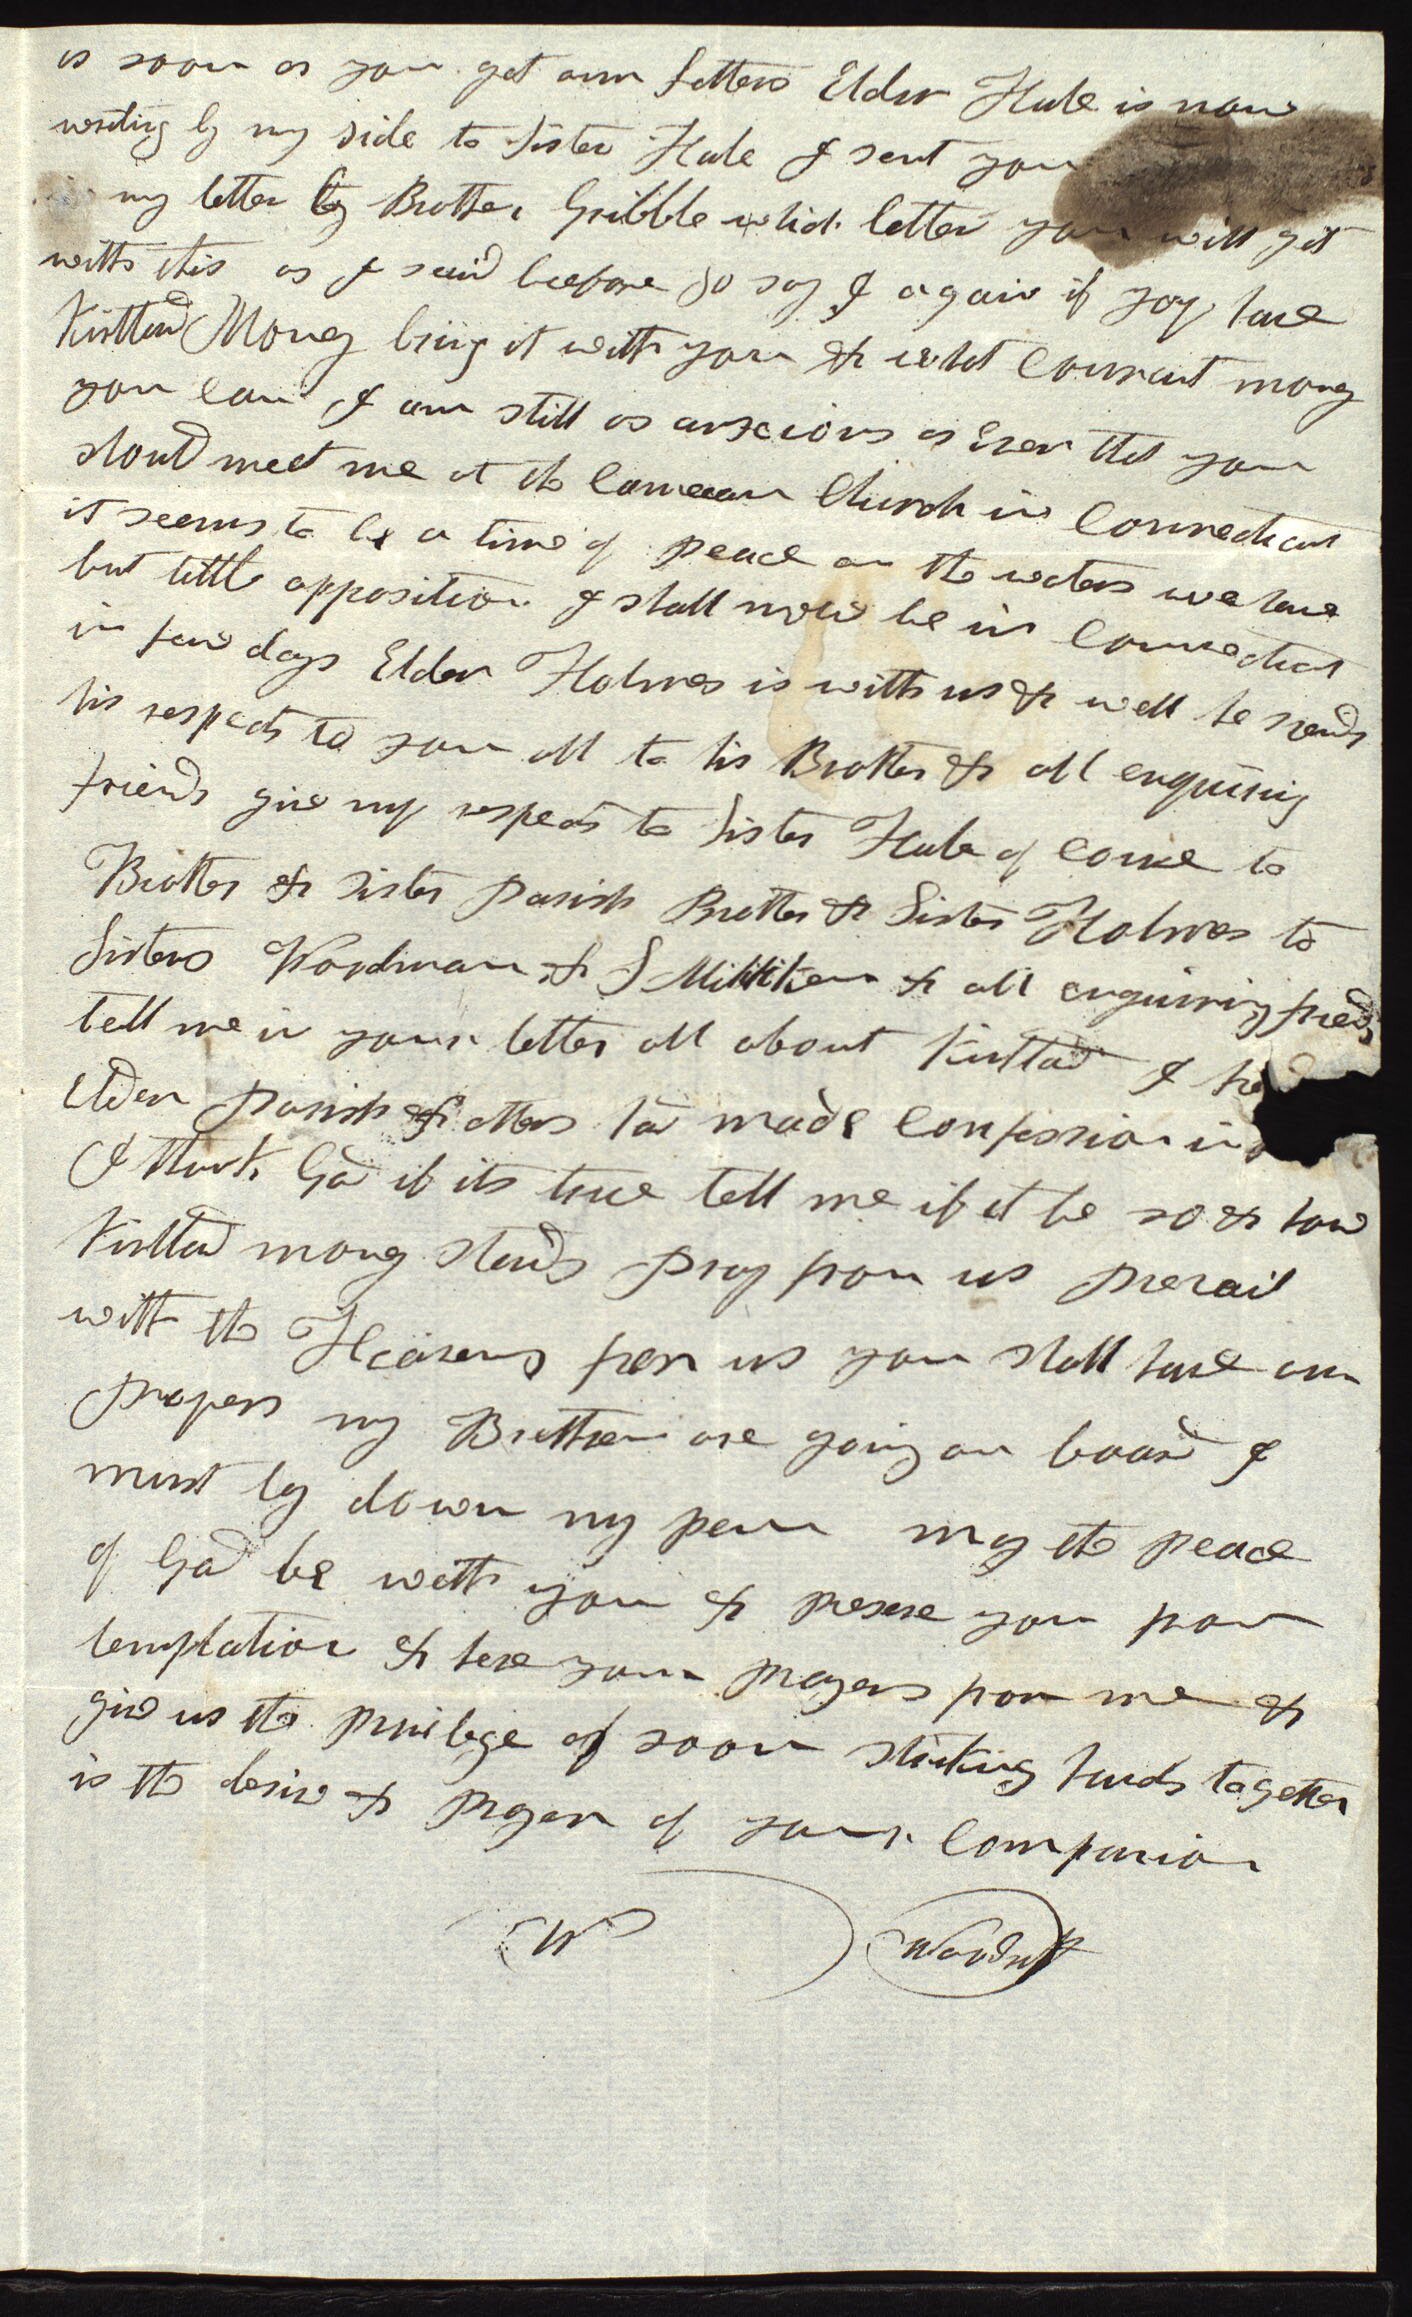 as soon as you get our letters Elder Hale is now
writing by my side to Sister Hale I sent you
my letter by Brother Gribble which letter you will get
with this as I said before so say I again if you have
Kirtland Money bring it with you & what Courant money
you can I am still as anxcious as ever that you
should meet me at the Canaan Church in Connecticut
it seems to be a time of peace on the waters we have
but little opposition I shall now be in Connecticut
in few days Elder Holmes is with us & well he sends
his respects to you all to his Brother & all enquiring
friends give my respects to Sister Hale of course to
Brother & Sister Parish Brother & Sister Holmes to
Sisters Woodman & S Milikken & all enquiring friends
tell me in your letter all about Kirtland I
Elder Parish & others had made confession in
I thank God if its true tell me if it be so & how
Kirtland money stands Pray for us prevail
with the Heavens for us you shall have our
prayers my Brethren are going on board I
must lay down my pen may the peace
of God be with you & preserve you from
temptation & here your prayers for me &
give us the privilege of soon striking hands together
is the desire & prayer of your Companion
W Woodruff